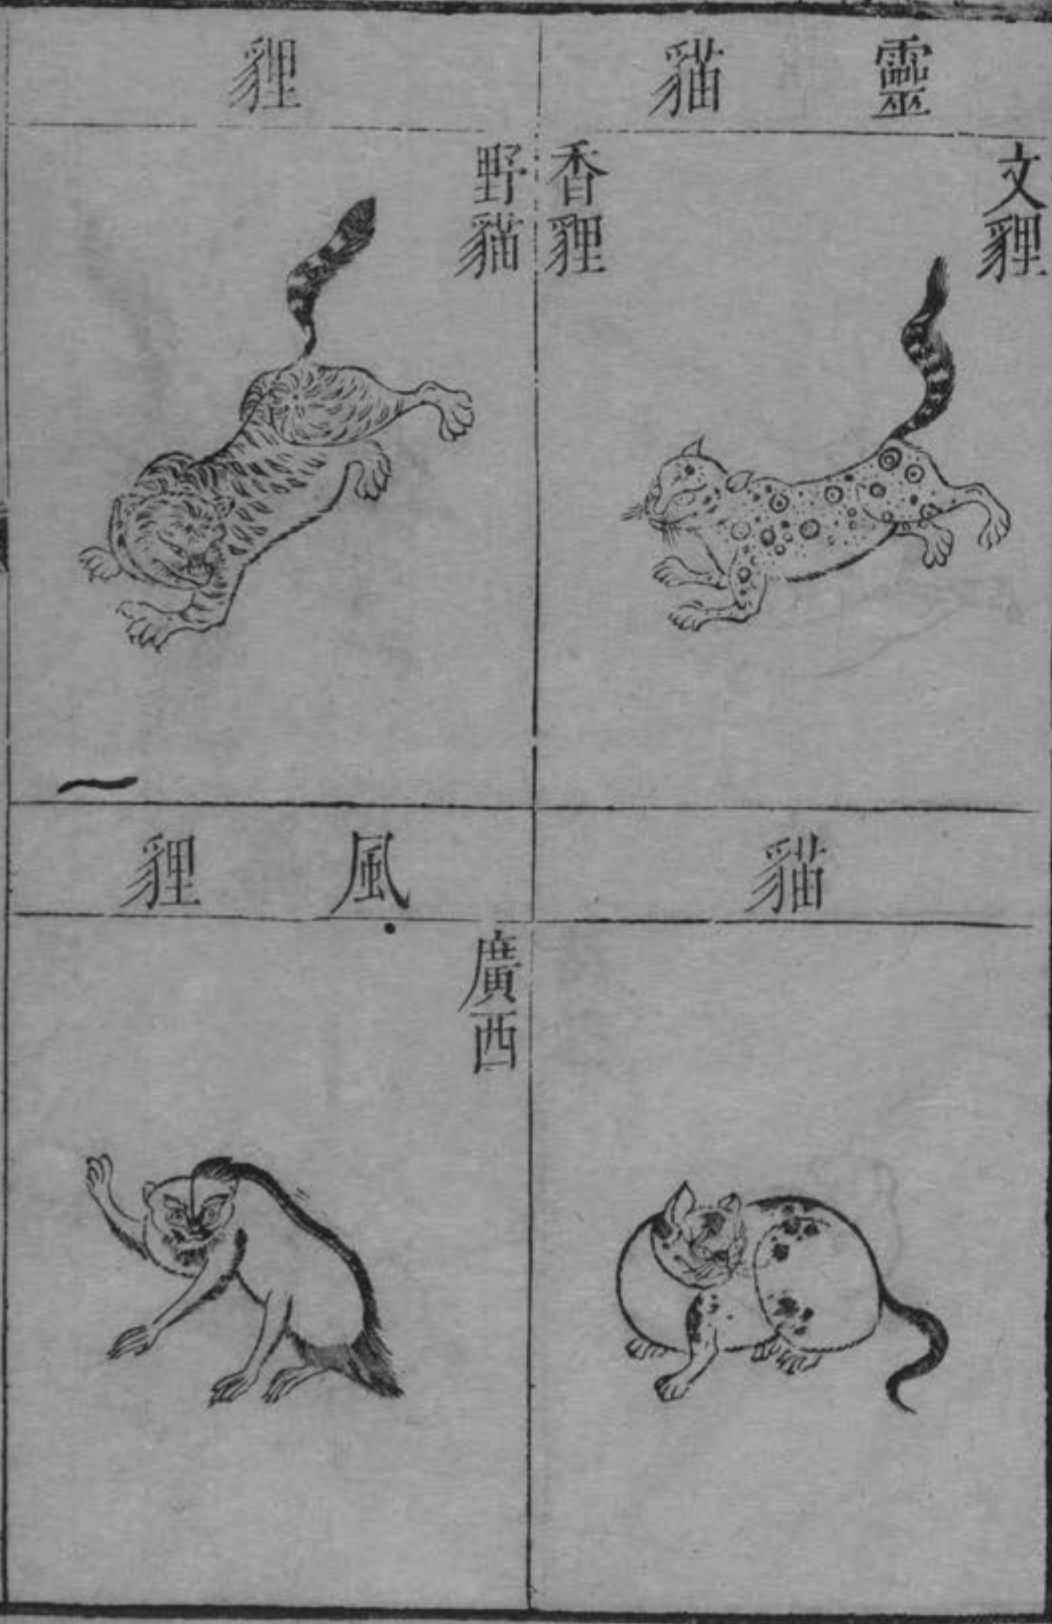 靈貓
文貍
香貍
貍
野貓
貓
風貍
廣西